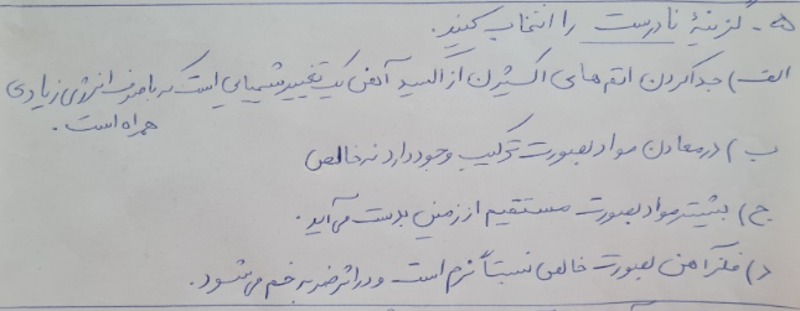 ۵- گزینهٔ نادرست را انتخاب کنید.
الف) جدا کردن اتم های اکسیژن از اکسید آهن یک تغییر شیمیایی است که با صرف انرژی زیادی
همراه است.
ب) در معادن مواد بصورت ترکیب وجود دارد نه خالص
ج) بیشتر مواد بصورت مستقیم از زمین بدست می آید.
د) فلز آهن بصورت خالص نسبتاً نرم است و در اثر ضربه خم می شود.